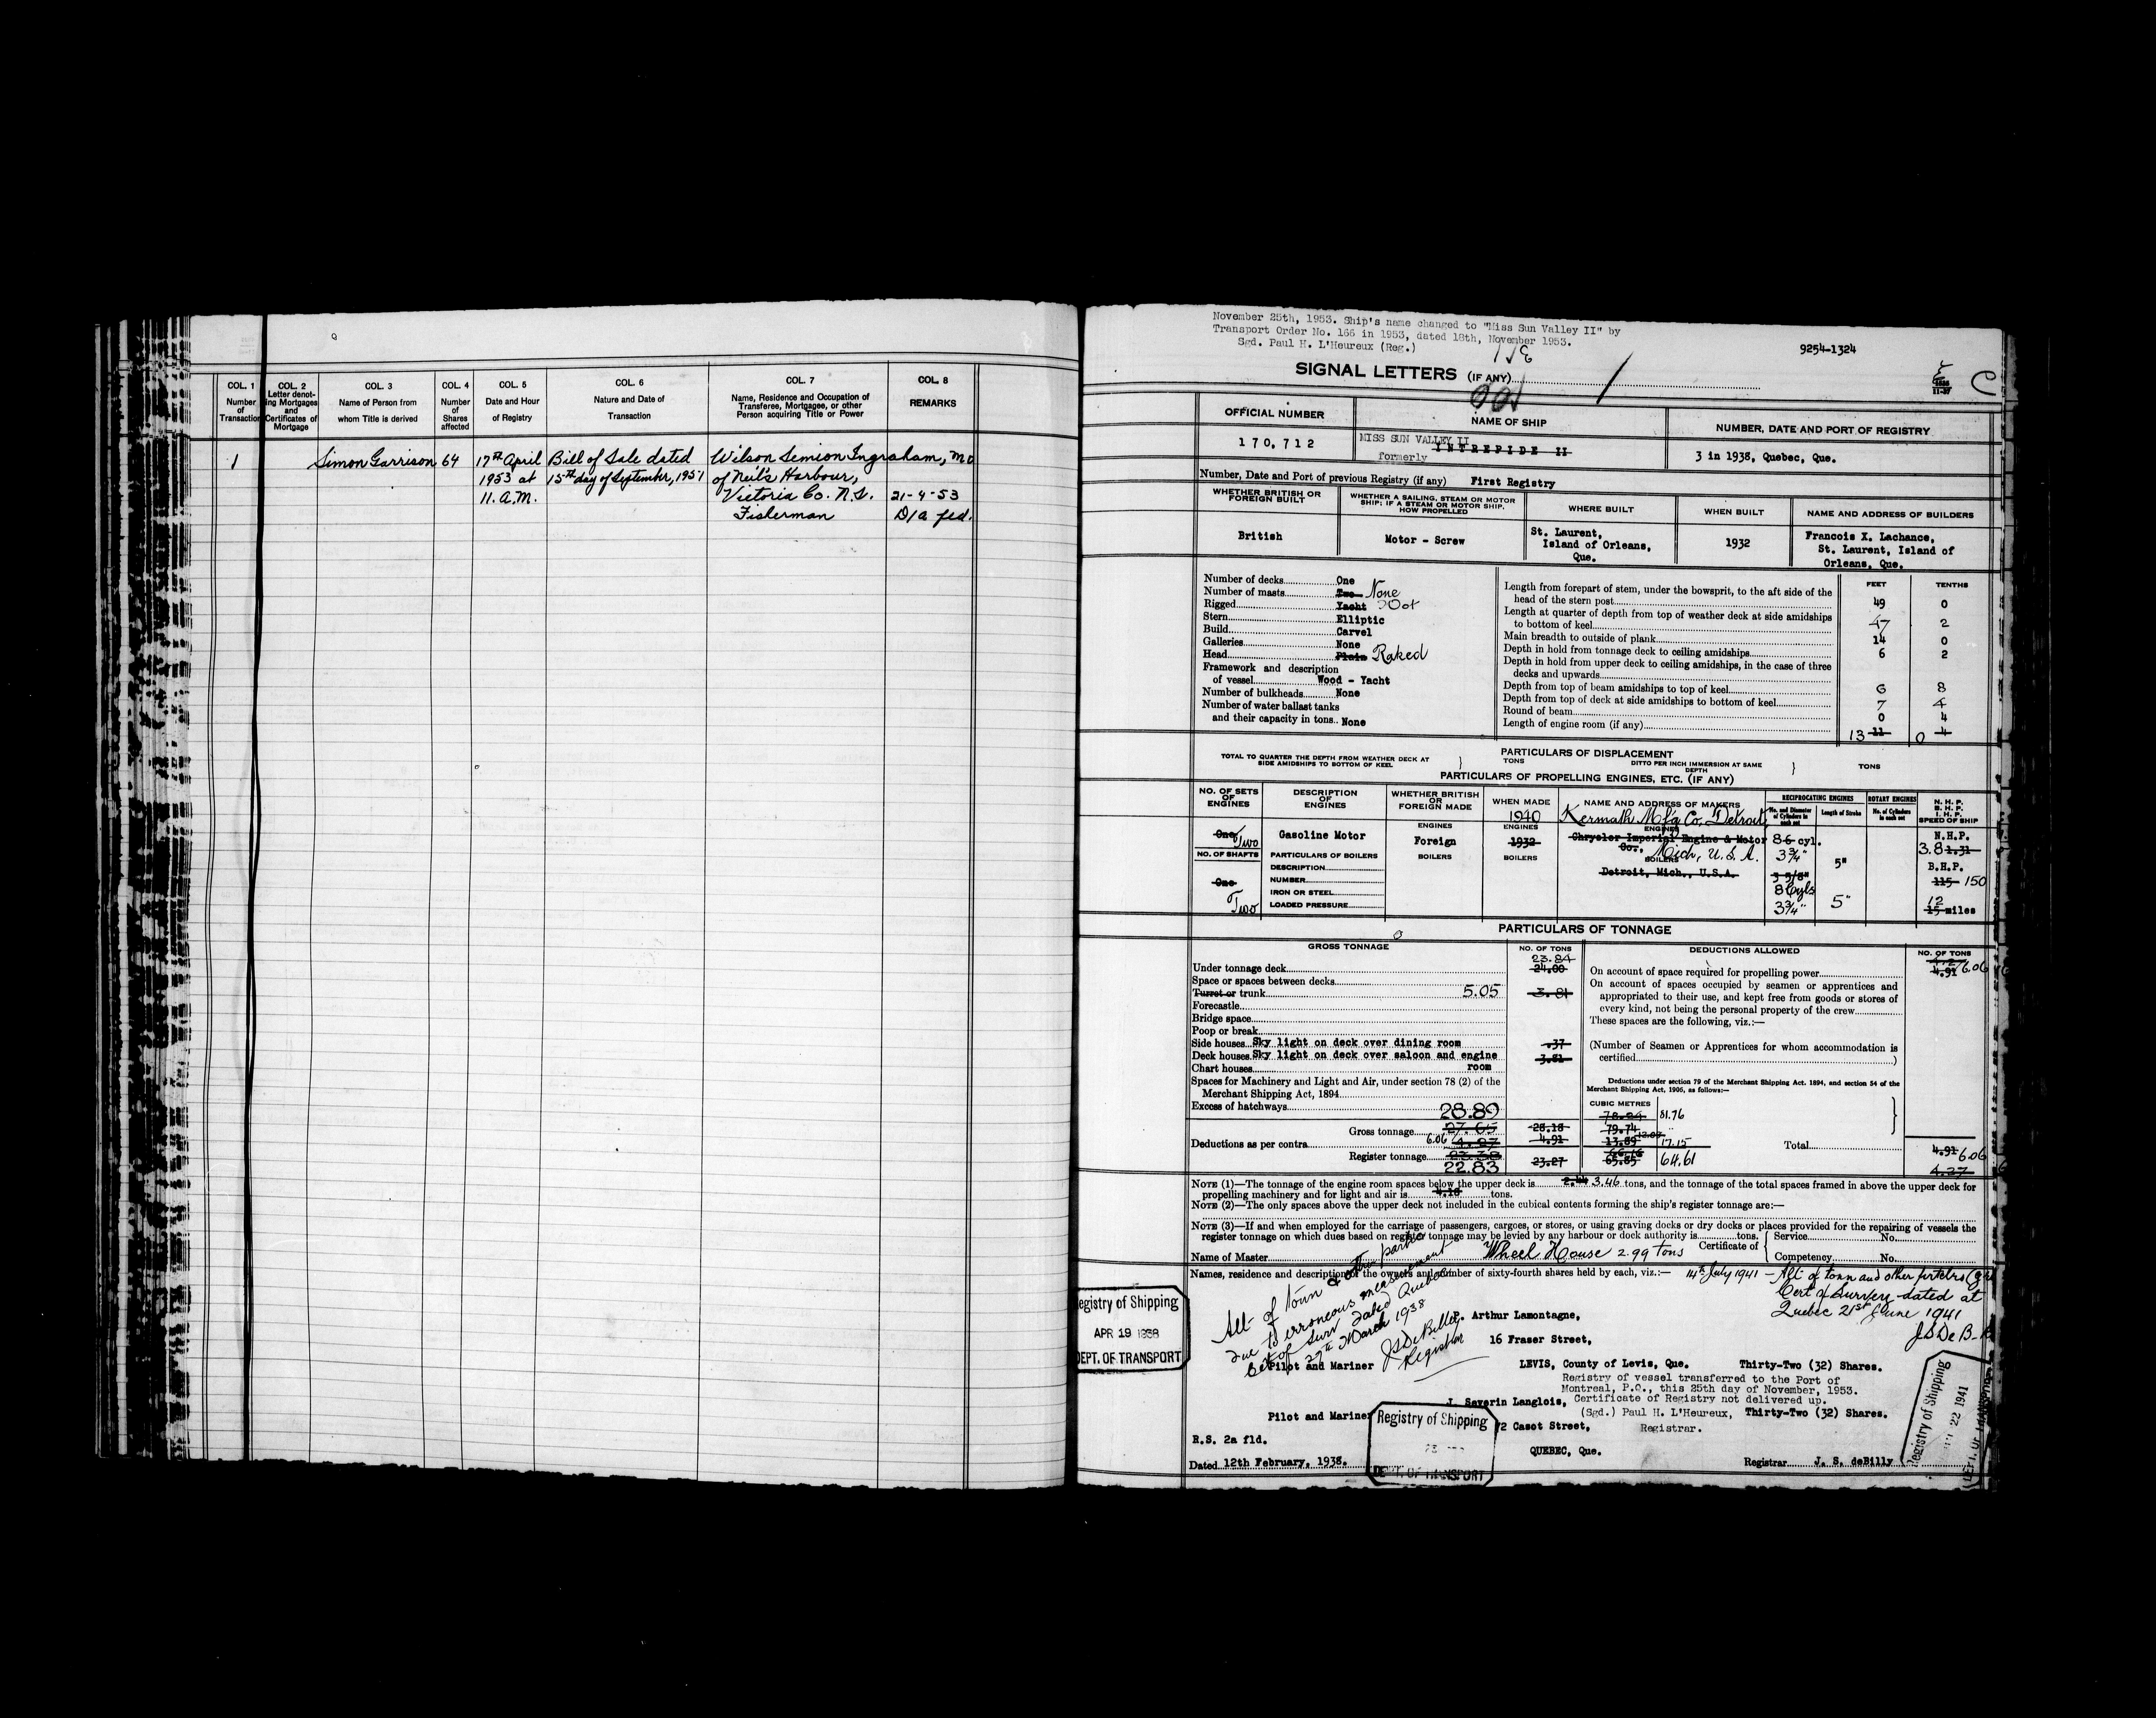 COL. 1
Number
of
Transaction
COL. 2
Letter denot-
ing Mortgages
and
Certificates of
Mortgage
COL. 3
Name of Person from
whom Title is derived
COL. 4
Number
of
Shares
affected
COL. 5
Date and Hour
of Registry
COL. 6
Nature and Date of
Transaction
COL. 7
Name, Residence and Occupation of
Transferee, Mortgagee, or other
Person acquiring Title or Power
COL. 8
REMARKS
1 Simon Garrison 64 17th April Bill of Sale dated Wilson Simion Ingraham,
1953 at 15th day of September, 1951 of Neil's Harbour,
11. A.M. Victoria Co. N.S. 21-4-53
Fisherman D/a fld.
November 25th, 1953. Ship's name changed to "Miss Sun Valley II" by
Transport Order No. 166 in 1953, dated 18th, November 1953.
Sgd. Paul H. L'Heureux (Reg.)
9254-1324
SIGNAL LETTERS (IF ANY)
C
11-37
OFFICIAL NUMBER
NAME OF SHIP
NUMBER, DATE AND PORT OF REGISTRY
170,712
MISS SUN VALLEY II
formerly INTREPIDE II
3 in 1938, Quebec, Que.
Number, Date and Port of previous Registry (if any) First Registry
WHETHER BRITISH OR
FOREIGN BUILT
WHETHER A SAILING, STEAM OR MOTOR
SHIP; IF A STEAM OR MOTOR SHIP,
HOW PROPELLED
WHERE BUILT
WHEN BUILT
NAME AND ADDRESS OF BUILDERS
British
Motor - Screw
St. Laurent,
Island of Orleans,
Que.
1932
Francois X. Lachance,
St. Laurent, Island of
Orleans, Que.
Number of decks One
Number of masts Two None
Rigged Yacht Not
Stern Elliptic
Build Carvel
Galleries None
Head Plain Raked
Framework and description
of vessel Wood - Yacht
Number of bulkheads None
Number of water ballast tanks
and their capacity in tons None
FEET TENTHS
Length from forepart of stem, under the bowsprit, to the aft side of the
head of the stern post 49 0
Length at quarter of depth from top of weather deck at side amidships
to bottom of keel 47 2
Main breadth to outside of plank 14 0
Depth in hold from tonnage deck to ceiling amidships 6 2
Depth in hold from upper deck to ceiling amidships, in the case of three
decks and upwards
Depth from top of beam amidships to top of keel 6 8
Depth from top of deck at side amidships to bottom of keel 7 4
Round of beam 0 4
Length of engine room (if any) 13 11 0 4
PARTICULARS OF DISPLACEMENT
TOTAL TO QUARTER THE DEPTH FROM WEATHER DECK AT
SIDE AMIDSHIPS TO BOTTOM OF KEEL
TONS
DITTO PER INCH IMMERSION AT SAME
DEPTH
TONS
PARTICULARS OF PROPELLING ENGINES, ETC. (IF ANY)
NO. OF SETS
OF
ENGINES
DESCRIPTION
OF
ENGINES
WHETHER BRITISH
OR
FOREIGN MADE
WHEN MADE
1940
NAME AND ADDRESS OF MAKERS
Kermath Mfg Co, Detroit
RECIPROCATING ENGINES
No. and Diameter
of Cylinders in
each set
Length of Stroke
ROTARY ENGINES
No. of Cylinders
in each set
N. H. P.
B. H. P.
I. H. P.
SPEED OF SHIP
ENGINES ENGINES ENGINES
One Two
Gasoline Motor
Foreign
1932
Chrysler Imperial Engine & Motor
Co., Mich, U.S.A.
Detroit, Mich., U.S.A.
8 6 cyl.
3¾"
5"
3 5/8"
8 Cyls
3¾"
5"
N.H.P.
3.8 1.31
B.H.P.
115 150
12
15 miles
NO. OF SHAFTS
One
Two
PARTICULARS OF BOILERS
BOILERS BOILERS BOILERS
DESCRIPTION
NUMBER
IRON OR STEEL
LOADED PRESSURE
PARTICULARS OF TONNAGE
GROSS TONNAGE
NO. OF TONS
DEDUCTIONS ALLOWED
NO. OF TONS
23.84
Under tonnage deck 24.00
Space or spaces between decks
Turret or trunk 5.05 3.81
Forecastle
Bridge space
Poop or break
Side houses Sky light on deck over dining room .37
Deck houses Sky light on deck over saloon and engine
Chart houses room
Spaces for Machinery and Light and Air, under section 78 (2) of the
Merchant Shipping Act, 1894
Excess of hatchways 28.89
Gross tonnage 27.65 28.18
Deductions as per contra 6.06 4.27 4.91
Register tonnage 23.38 23.27
22.83
On account of space required for propelling power 4.91 6.06
On account of spaces occupied by seamen or apprentices and
appropriated to their use, and kept free from goods or stores of
every kind, not being the personal property of the crew
These spaces are the following, viz.:—
(Number of Seamen or Apprentices for whom accommodation is
certified )
Deductions under section 79 of the Merchant Shipping Act. 1894, and section 54 of the
Merchant Shipping Act, 1906, as follows:—
CUBIC METRES
81.76
79.74
13.89 17.15
65.85 64.61
Total 4.91 6.06
4.27
NOTE (1)—The tonnage of the engine room spaces below the upper deck is 3.46 tons, and the tonnage of the total spaces framed in above the upper deck for
propelling machinery and for light and air is tons.
NOTE (2)—The only spaces above the upper deck not included in the cubical contents forming the ship's register tonnage are:—
NOTE (3)—If and when employed for the carriage of passengers, cargoes, or stores, or using graving docks or dry docks or places provided for the repairing of vessels the
register tonnage on which dues based on register tonnage may be levied by any harbour or dock authority is tons.
Wheel House 2.99 tons
Name of Master
Certificate of
Service No.
Competency No.
Names, residence and description of the owners and number of sixty-fourth shares held by each, viz.:—
14th July 1941 - Alt of tonn and other
Cert of Survey dated at
Quebec 21st June 1941
J S De B
Alt of tonn & other
due to erroneous measurement
Cert of Surv dated Quebec
29th March 1938
JSDeBilly
Registrar
P. Arthur Lamontagne,
16 Fraser Street,
Pilot and Mariner
LEVIS, County of Levis, Que. Thirty-Two (32) Shares.
Registry of vessel transferred to the Port of
Montreal, P.Q., this 25th day of November, 1953.
Certificate of Registry not delivered up.
(Sgd.) Paul H. L'Heureux,
Registrar.
J. Severin Langlois,
Pilot and Mariner
Thirty-Two (32) Shares.
72 Casot Street,
QUEBEC, Que.
R.S. 2a fld.
Dated 12th February, 1938.
Registrar J. S. deBilly
Registry of Shipping
APR 19 1938
DEPT. OF TRANSPORT
Registry of Shipping
DEPT. OF TRANSPORT
Registry of Shipping
22 1941